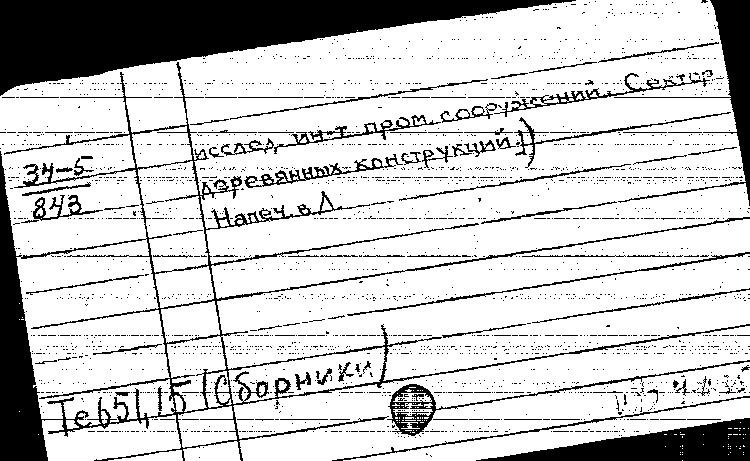 исслед. ин-т пром. сооружений. Сектор
34-5
деревянных конструкций])
843
Напеч. в Л.
Те651,15 (Сборники)